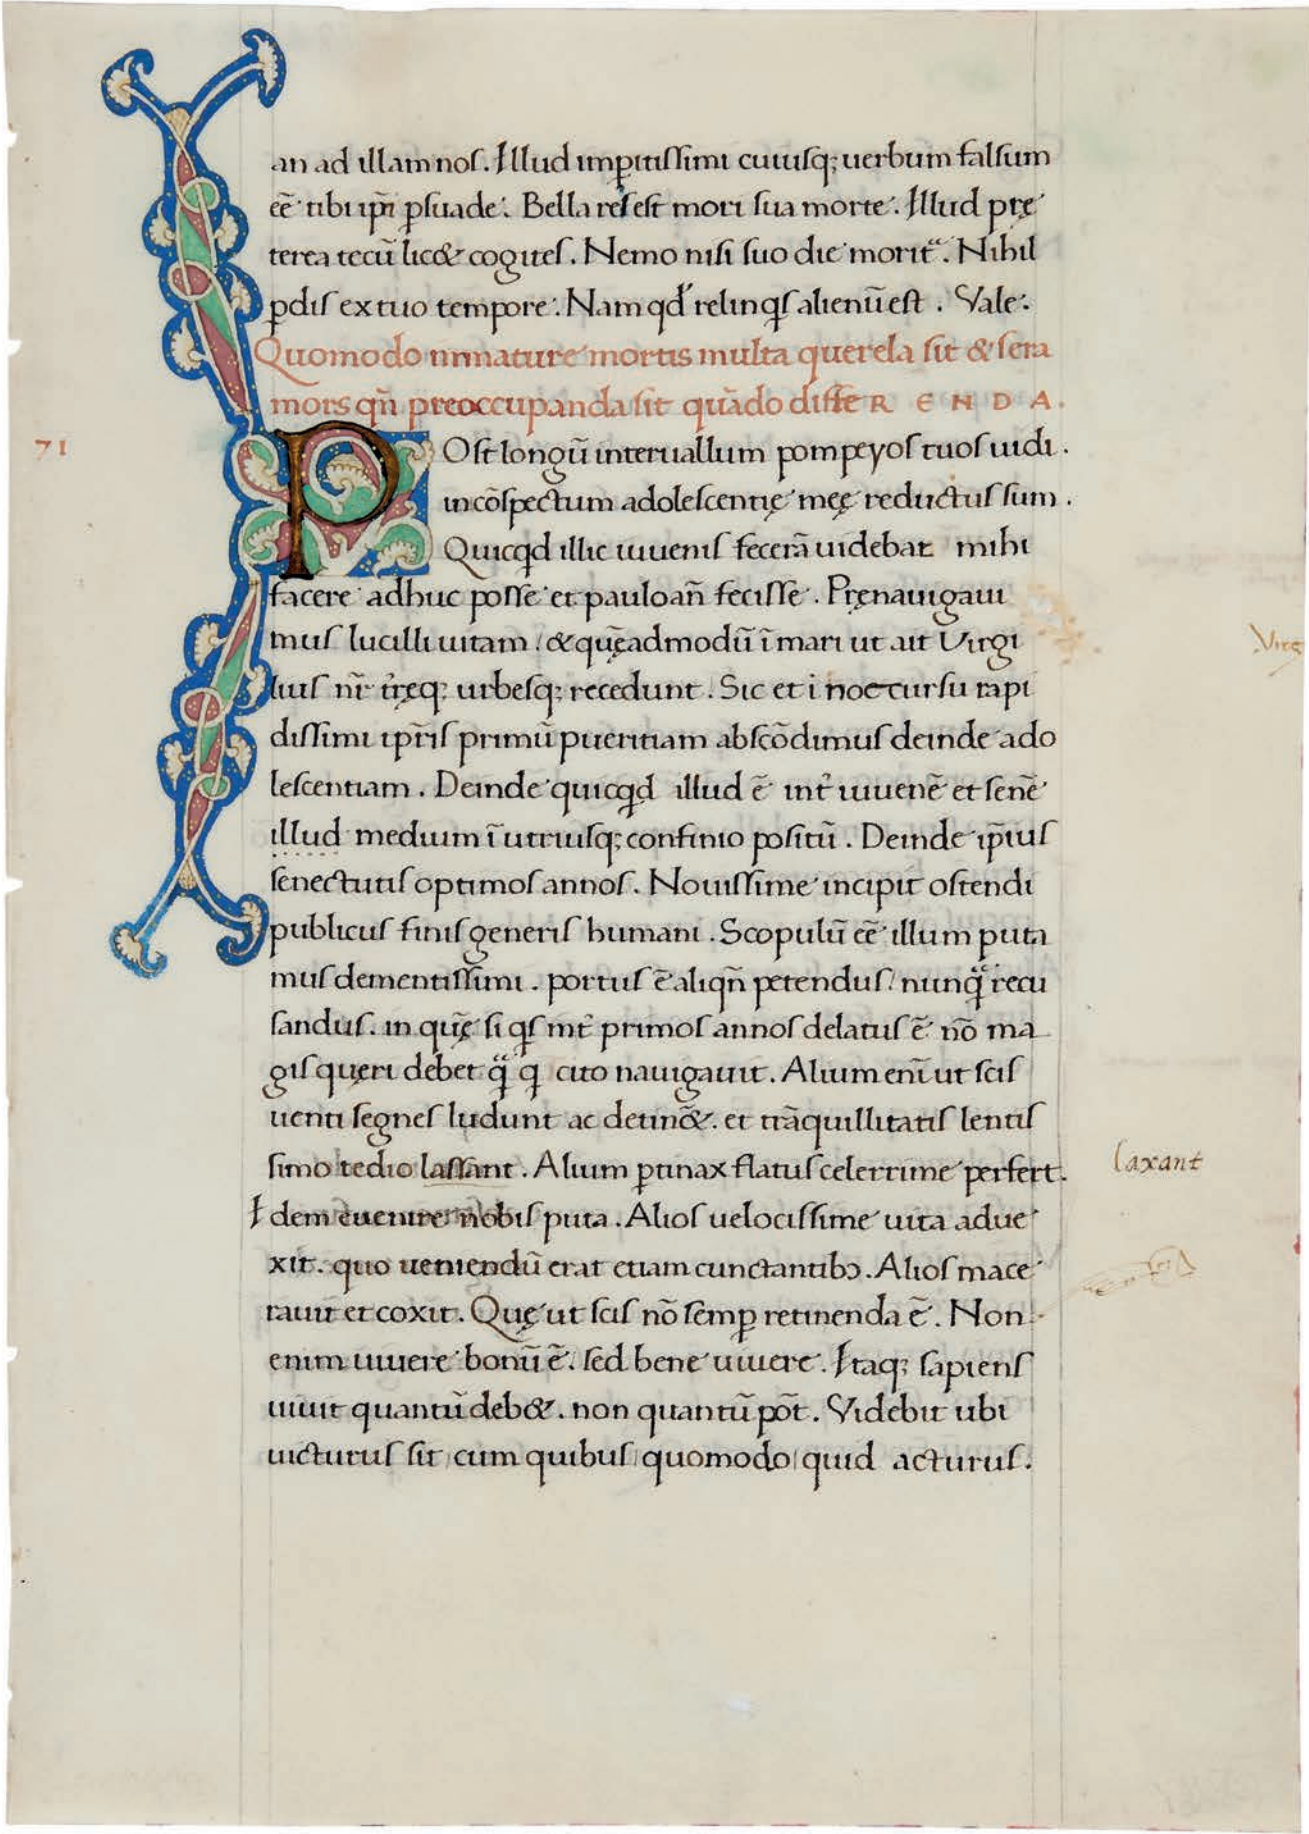 an ad illam nos. Illud imꝑitissimi cuiusq; uerbum falsum
eē tibi ip̄i ꝑsuade. Bella res est mori sua morte. Illud prę
terea tecū lic& cogites. Nemo nisi suo die morit᷑. Nihil
ꝑdis ex tuo tempore. Nam qd́ relinqs alienū est. Vale.
Quomodo inmature mortis multa querela sit & sera
mors qn̄ preoccupanda sit quādo diffeRENDA.
71
POst longū interuallum pompeyos tuos uidi.
in cōspectum adolescentię męę reductus sum.
Quicqd illic iuuenis fecerā uidebar mihi
facere adhuc posse et pauloan̄ fecisse. Pręnauigaui
mus lucilli uitam. & quęadmodū ī mari ut ait Virgi
Virg
lius nr̄ tr̄ęq; urbesq; recedunt. Sic et i hoc cursu rapi
dissimi tp̄ris primū pueritiam abscōdimus deinde ado
lescentiam. Deinde quicqd illud ē int̄ iuuenē et senē
illud medium ī utriusq; confinio positū. Deinde ip̄ius
senectutis optimos annos. Nouissime incipit ostendi
publicus finis generis humani. Scopulū eē illum puta
mus dementissimi. portus ē aliqn̄ petendus / nunq̄ recu
sandus. in quę̄ si qs int̄ primos annos delatus ē nō ma
gis queri debet q̄ q cito nauigauit. Alium eni ̄ ut scis
uenti segnes ludunt ac detin&̄. et trāquillitatis lentis
simo tedio lassant. Alium ꝑtinax flatus celerrime perfert.
laxant
Idem euenire nobis puta. Alios uelocissime uita adue
xit. quo ueniendū erat etiam cunctantibꝫ. Alios mace
rauit et coxit. Quę ut scis nō semꝑ retinenda ē. Non
enim uiuere bonū ē. sed bene uiuere. Itaq; sapiens
uiuit quantū deb&. non quantū pōt. Videbit ubi
uicturus sit / cum quibus / quomodo / quid acturus.